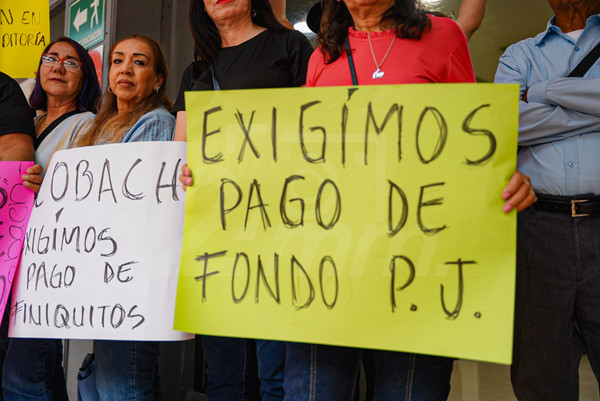 N EN
DITORÍA
COBACH
EXIGÍMOS
PAGO DE
FINIQUITOS
EXIGÍMOS
PAGO DE
FONDO P.J.